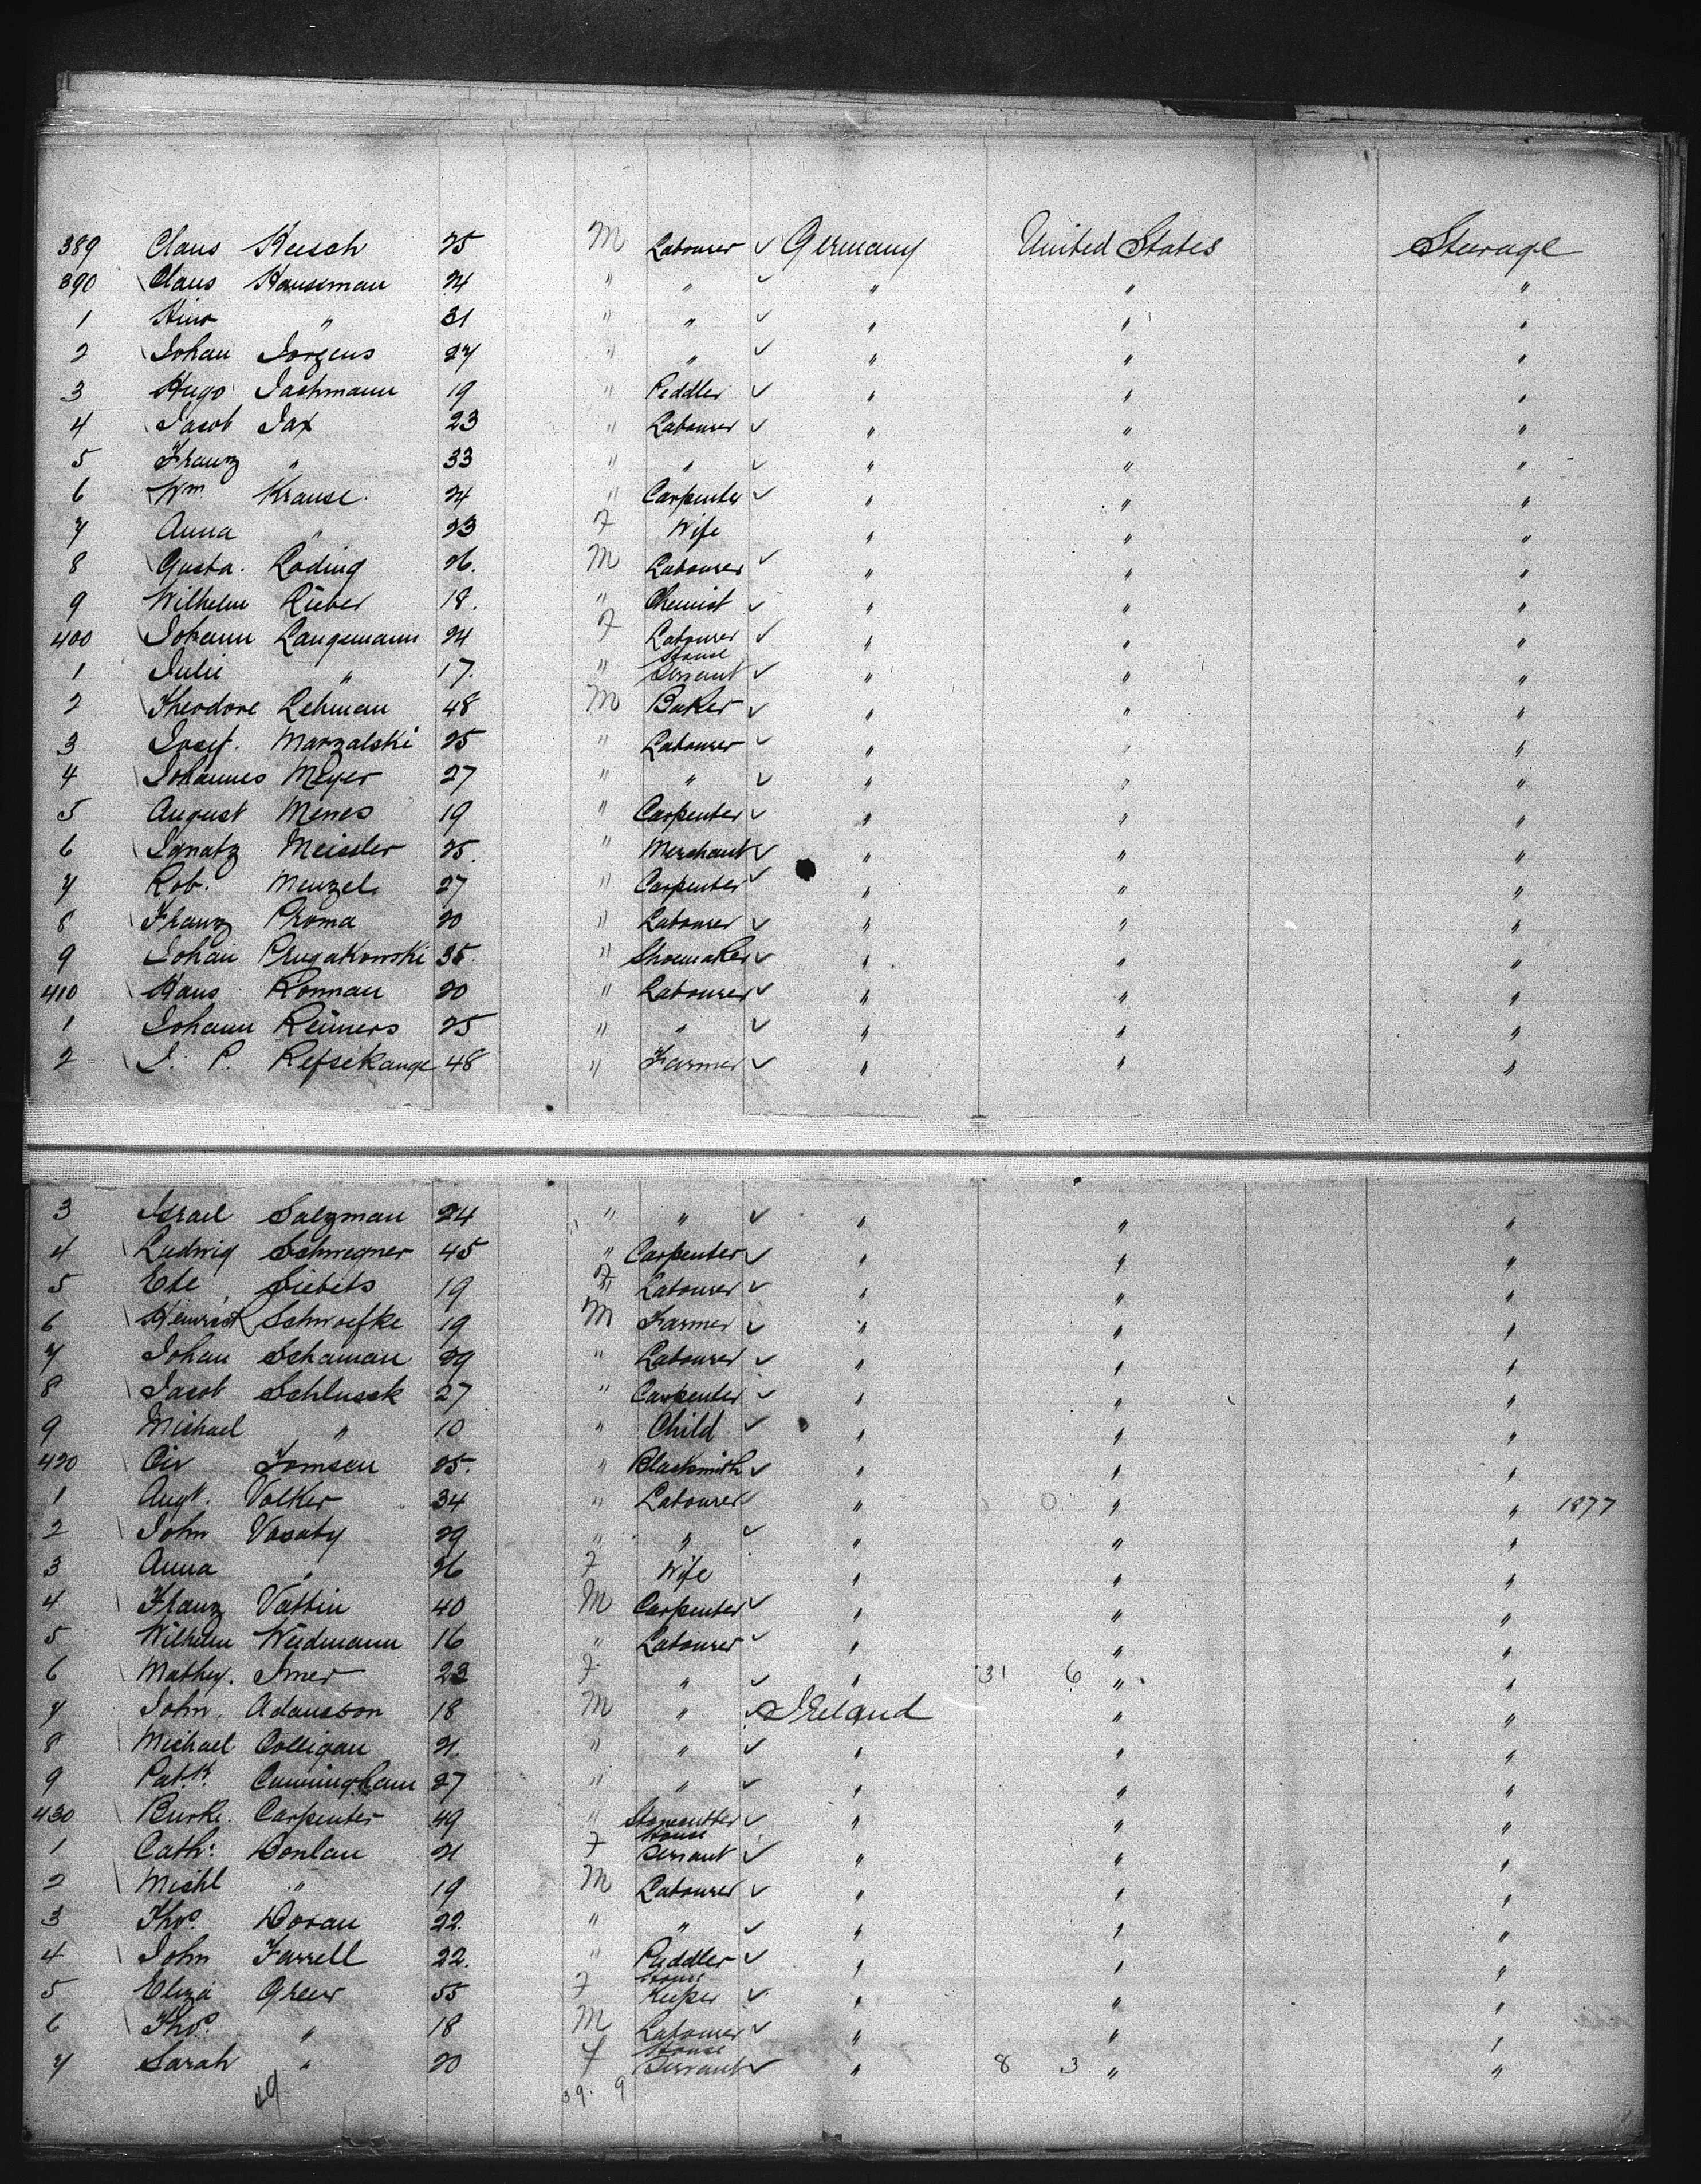 389 Claus Keesch 25 M Labourer ✓ Germany United States Steerage
390 Claus Hanseman 24 " " ✓ " " "
1 Hinr " 31 " " ✓ " " "
2 Johan Jorgens 27 " " ✓ " " "
3 Hugo Jachmann 19 " Peddler ✓ " " "
4 Jacob Jax 23 " Labourer ✓ " " "
5 Franz " 33 " " ✓ " " "
6 Wm Krause 24 " Carpenter ✓ " " "
7 Anna " 23 F Wife " " "
8 Gusta. Loding 26. M Labourer ✓ " " "
9 Wilhelm Lieber 18. " Chemist ✓ " " "
400 Johann Langemann 24 F Labourer ✓ " " "
1 Julie " 17. " House Servant ✓ " " "
2 Theodore Lehman 48 M Baker ✓ " " "
3 Josef. Marzalski 25 " Labourer ✓ " " "
4 Johannes Meyer 27 " " ✓ " " "
5 August Menes 19 " Carpenter ✓ " " "
6 Ignatz Meissler 25. " Merchant ✓ " " "
7 Rob. Menzel 27 " Carpenter ✓ " " "
8 Franz Proma 20 " Labourer ✓ " " "
9 Johan Prugakowski 35. " Shoemaker ✓ " " "
410 Hans Ronnau 20 " Labourer ✓ " " "
1 Johann Reimers 25 " " ✓ " " "
2 J. P. Refsekange 48 " Farmer ✓ " " "
3 Israel Salzman 24 " " ✓ " " "
4 Ludwig Schwegner 45 " Carpenter ✓ " " "
5 Ete Siebets 19 F Labourer ✓ " " "
6 Heinrich Schwoefke 19 M Farmer ✓ " " "
7 Johan Schaman 29 " Labourer ✓ " " "
8 Jacob Schlusek 27 " Carpenter ✓ " " "
9 Michael " 10 " Child ✓ " " "
420 Civ Tomsen 25. " Blacksmith ✓ " " "
1 Augt. Volker 34 " Labourer ✓ " 0 " " 1877
2 John Vasaty 29 " " ✓ " " "
3 Anna " 26 F Wife " " "
4 Franz Vattin 40 M Carpenter ✓ " " "
5 Wilhelm Weidmann 16 " Labourer ✓ " " "
6 Mathey. Imer 23 F " ✓ " 31 6 " "
7 John. Adamson 18 M " ✓ Ireland " "
8 Michael Colligan 21. " " ✓ " " "
9 Pat.k Cunningham 27 " " ✓ " " "
430 Burke. Carpenter 49 " Stonecutter ✓ " " "
1 Cath: Donlan 21 F House Servant ✓ " " "
2 Michl " 19 M Labourer ✓ " " "
3 Thos. Doran 22. " " ✓ " " "
4 John Farrell 22. " Puddler ✓ " " "
5 Eliza Green 55 F House Keeper ✓ " " "
6 Thos. " 18 M Labourer ✓ " " "
7 Sarah " 20 F House Servant ✓ " 8 3 " "
49 39. 9